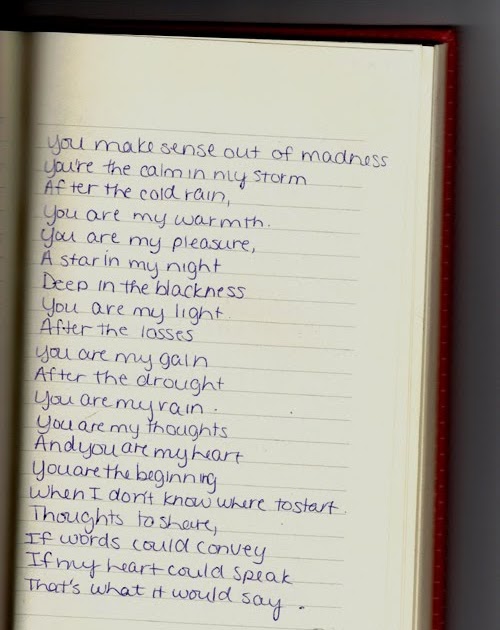 you make sense out of madness
You're the calm in my storm
After the cold rain,
You are my warmth.
You are my pleasure,
A star in my night
Deep in the blackness
You are my light.
After the losses
you are my gain
After the drought
You are my rain.
You are my thoughts
And you are my heart
You are the beginning
When I don't know where to start.
Thoughts to share,
If words could convey
If my heart could speak
That's what it would say.